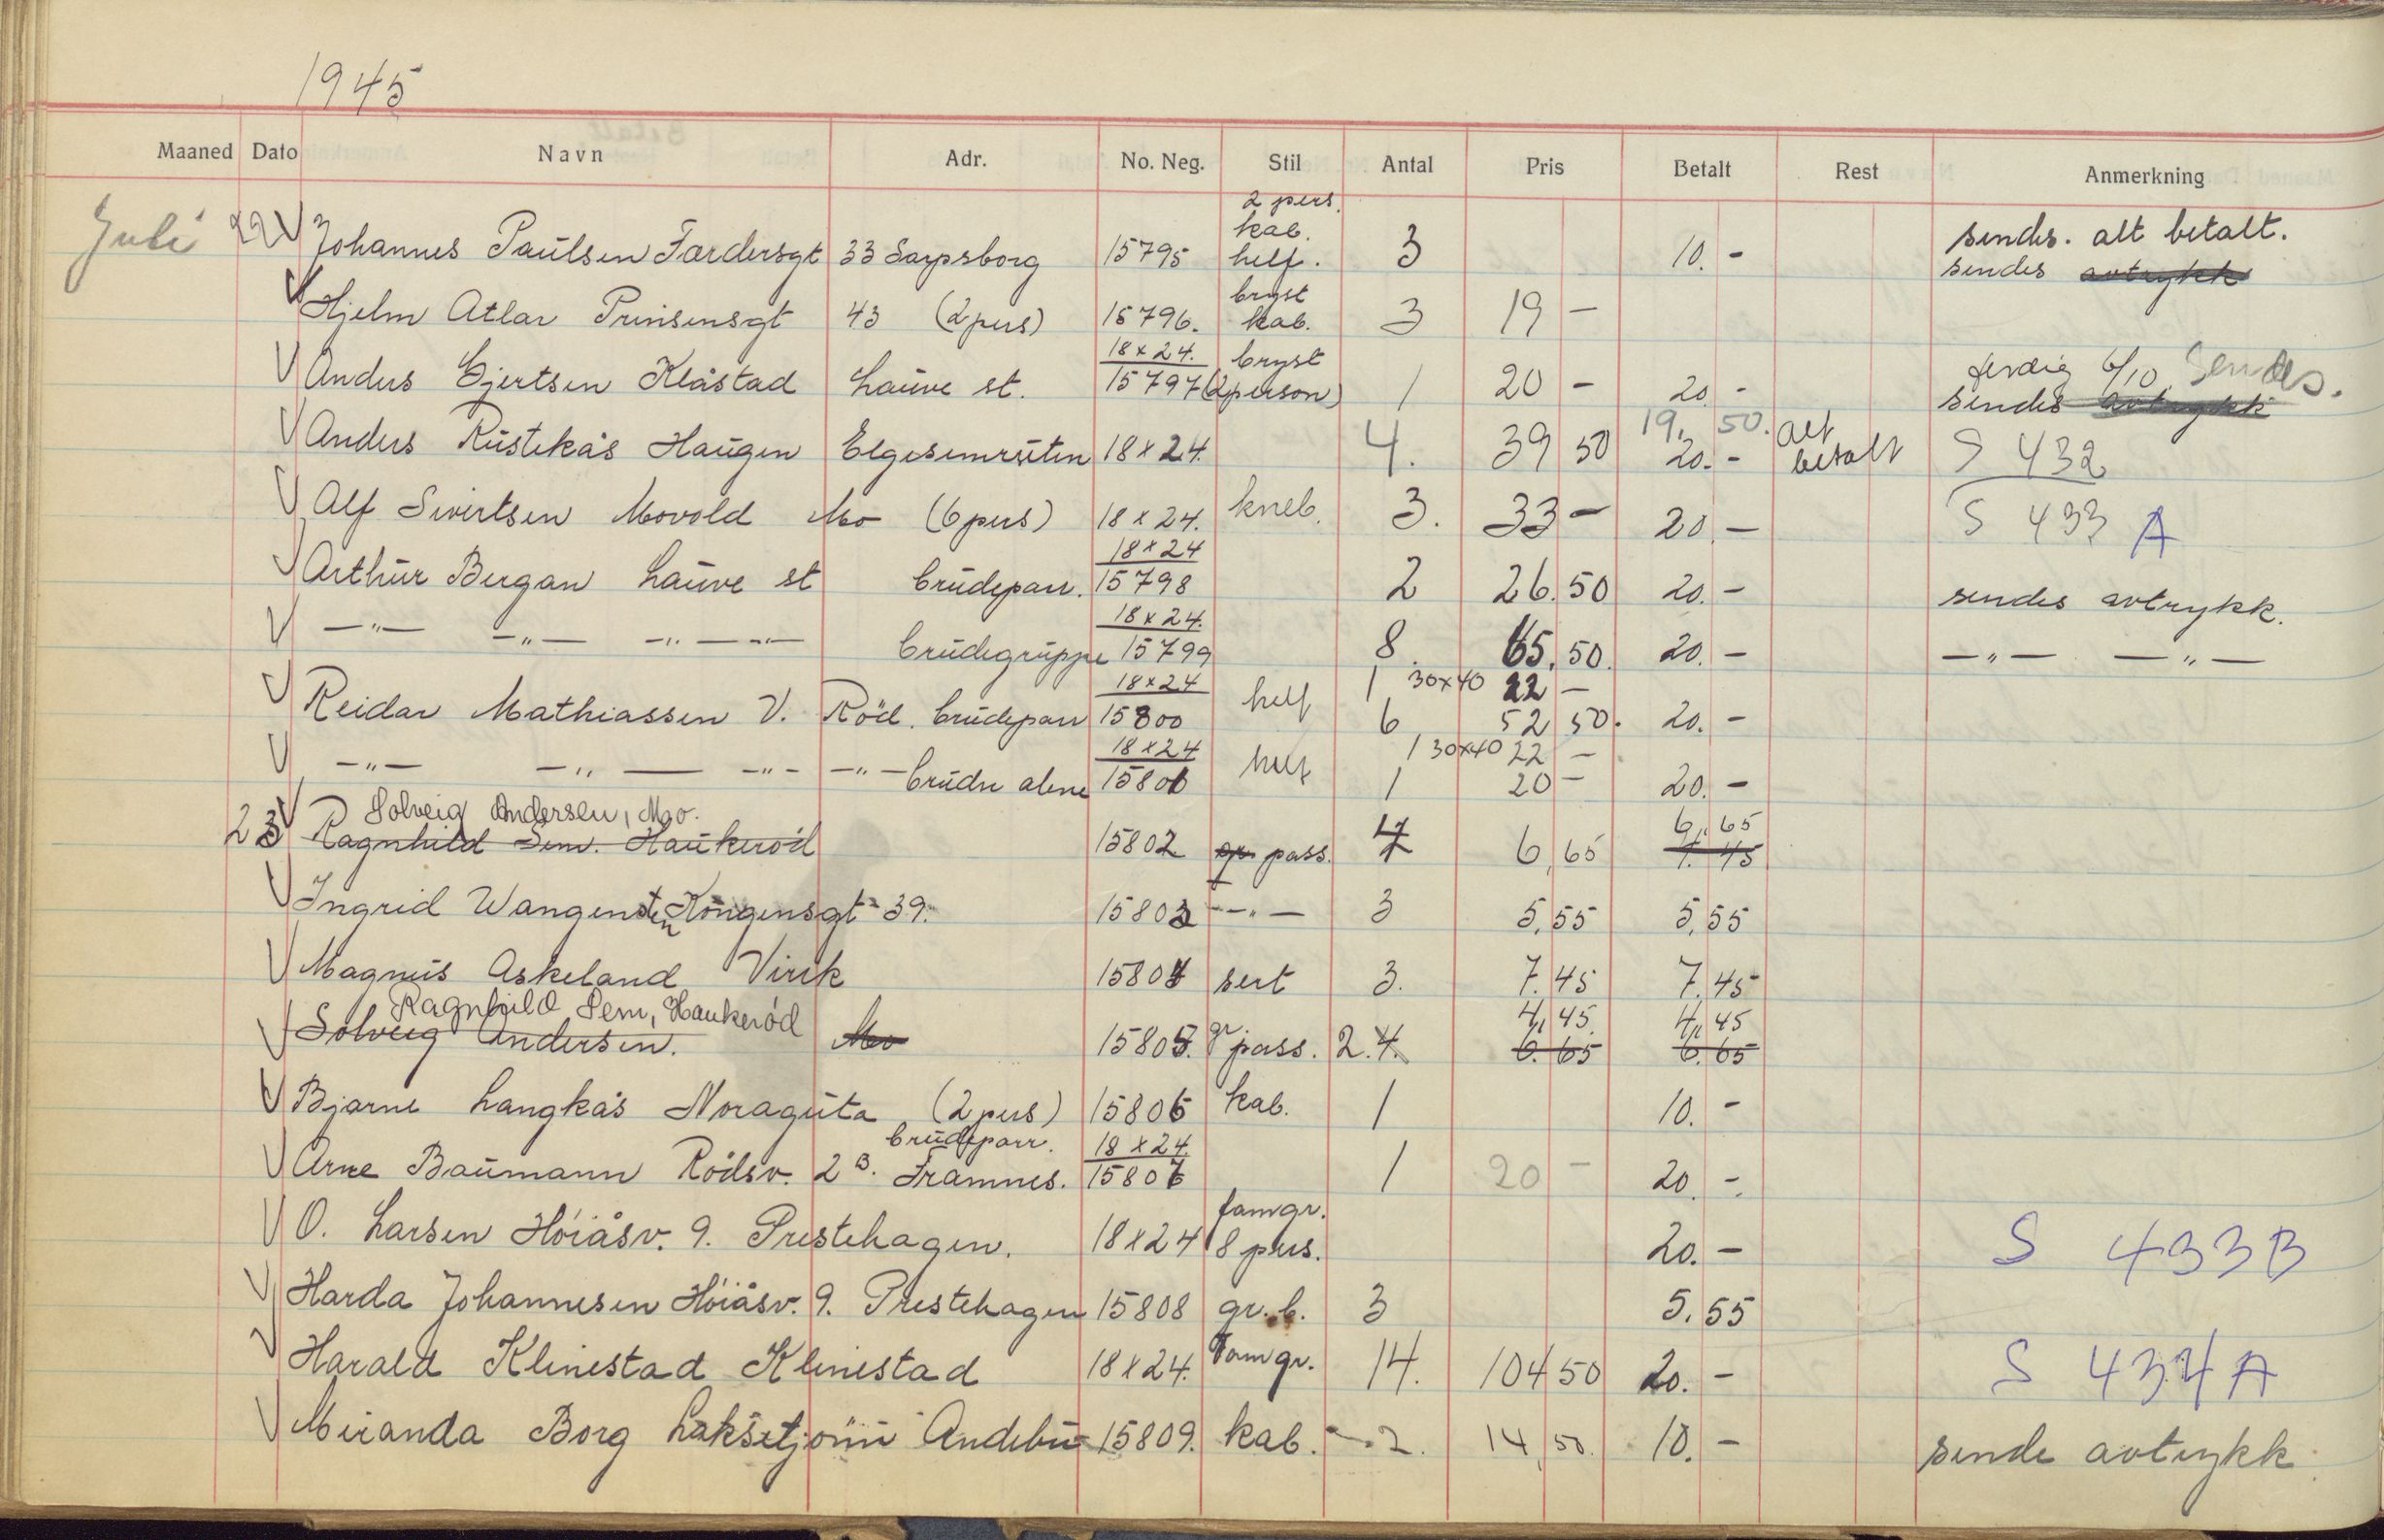 1945
Maaned Dato Navn Adr. No. Neg. Stil Antal Pris Betalt Rest Anmerkning
2 pers.
Juli 22 Johannes Paulsen Færdersgt 33 Sarpsborg 15795 kab. helf. 3 10.- sendes. alt betalt.
sendes avtrykk
Hjelm Atlar Prinsensgt 43 (2 pers) 15796. bryst kab. 3 19 -
Anders Gjertsen Klåstad Lauve st. 18x24. 15797 bryst (2 person) 1 20 - 20 - ferdig 6/10 Sendes.
sendes avtrykk
Anders Rustekås Haugen Elgesemruten 18x24. 4. 39 50 19. 50. 20.- alt betalt S 432
Alf Sivertsen Movold Mo (6 pers) 18x24. kneb. 3. 33 - 20.- S 433 A
Arthur Bergan Lauve st brudepar. 18x24 15798 2 26.50 20.- sendes avtrykk.
-"- -"- -"- -"- brudegruppe 18x24. 15799 8. 65.50. 20.- -"- -"-
Reidar Mathiassen V. Röd. brudepar 18x24 15800 helf 1 30x40 22 -
6 52 50. 20.-
-"- -"- -"- -"- brudn alene 18x24 15801 helf 1 30x40 22 -
1 20 - 20.-
Solveig Andersen, Mo.
23 Ragnhild Sem. Haukeröd 15802 gr pass. 4 6,65 6,65
7.45
Ingrid Wangensten Kongensgt 39. 15803 -"- 3 5,55 5,55
Magnus Askeland Virik 15804 sert 3. 7.45 7.45
Ragnhild Sem, Haukeröd 4,45. 4,45
Solveig Andersen. Mo 15805. gr pass. 2.4. 6.65 6.65
Bjarne Langkås Noraguta (2 pers) 15806 kab. 1 10.-
Arne Baumann Rödsv. 2 B. Framnes. brudepar. 18x24. 15807 1 20 - 20.-
O. Larsen Höiåsv. 9. Prestehagen. 18x24 famgr. 8 pers. 20.- S 433 B
Harda Johannesen Höiåsv. 9. Prestehagen 15808 gr. b. 3 5.55
Harald Klinestad Klinestad 18x24. Famgr. 14. 104 50 20.- S 434 A
Miranda Borg Laksetjönn Andebu 15809. kab. 2. 14,50. 10.- sende avtrykk.